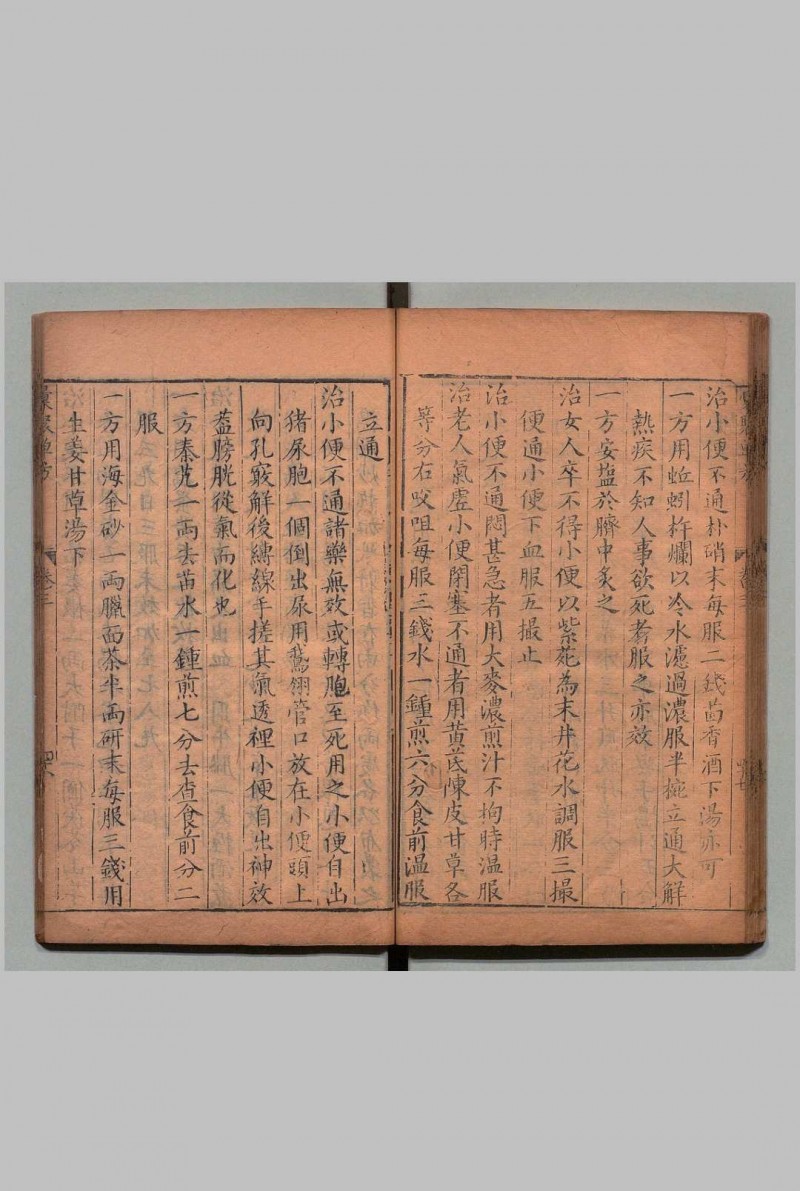 治小便不通朴硝末每服二錢茴香酒下湯亦可
一方用蚯蚓杵爛以冷水濾過濃服半椀立通大解
熱疾不知人事欲死者服之亦效
一方安塩於臍中炙之
治女人卒不得小便以紫菀為末井花水調服三撮
便通小便下血服五撮止
治小便不通悶甚急者用大麥濃煎汁不拘時温服
治老人氣虛小便閉塞不通者用黄芪陳皮甘草各
等分右㕮咀每服三錢水一鍾煎六分食前温服
立通
治小便不通諸藥無效或轉胞至死用之小便自出
猪尿胞一個倒出尿用鵞翎管口放在小便頭上
向孔竅解後縛線手搓其氣透裡小便自出神效
葢膀胱從氣而化也
一方秦艽一両去苗水一鍾煎七分去查食前分二
服
一方用海金砂一両臘面茶半両研末每服三錢用
生姜甘草湯下
卷三